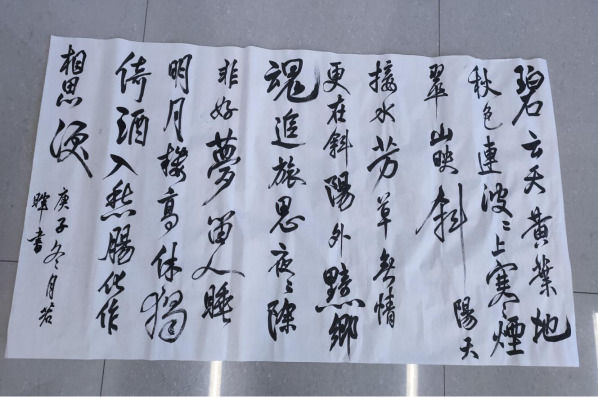 碧云天黄葉地
秋色連波々上寒煙
翠山映斜陽天
接水芳草無情
更在斜陽外黯鄉
魂追旅思夜々除
非好夢留人睡
明月樓高休獨
倚酒入愁腸化作
相思淚
庚子冬月若
暉書